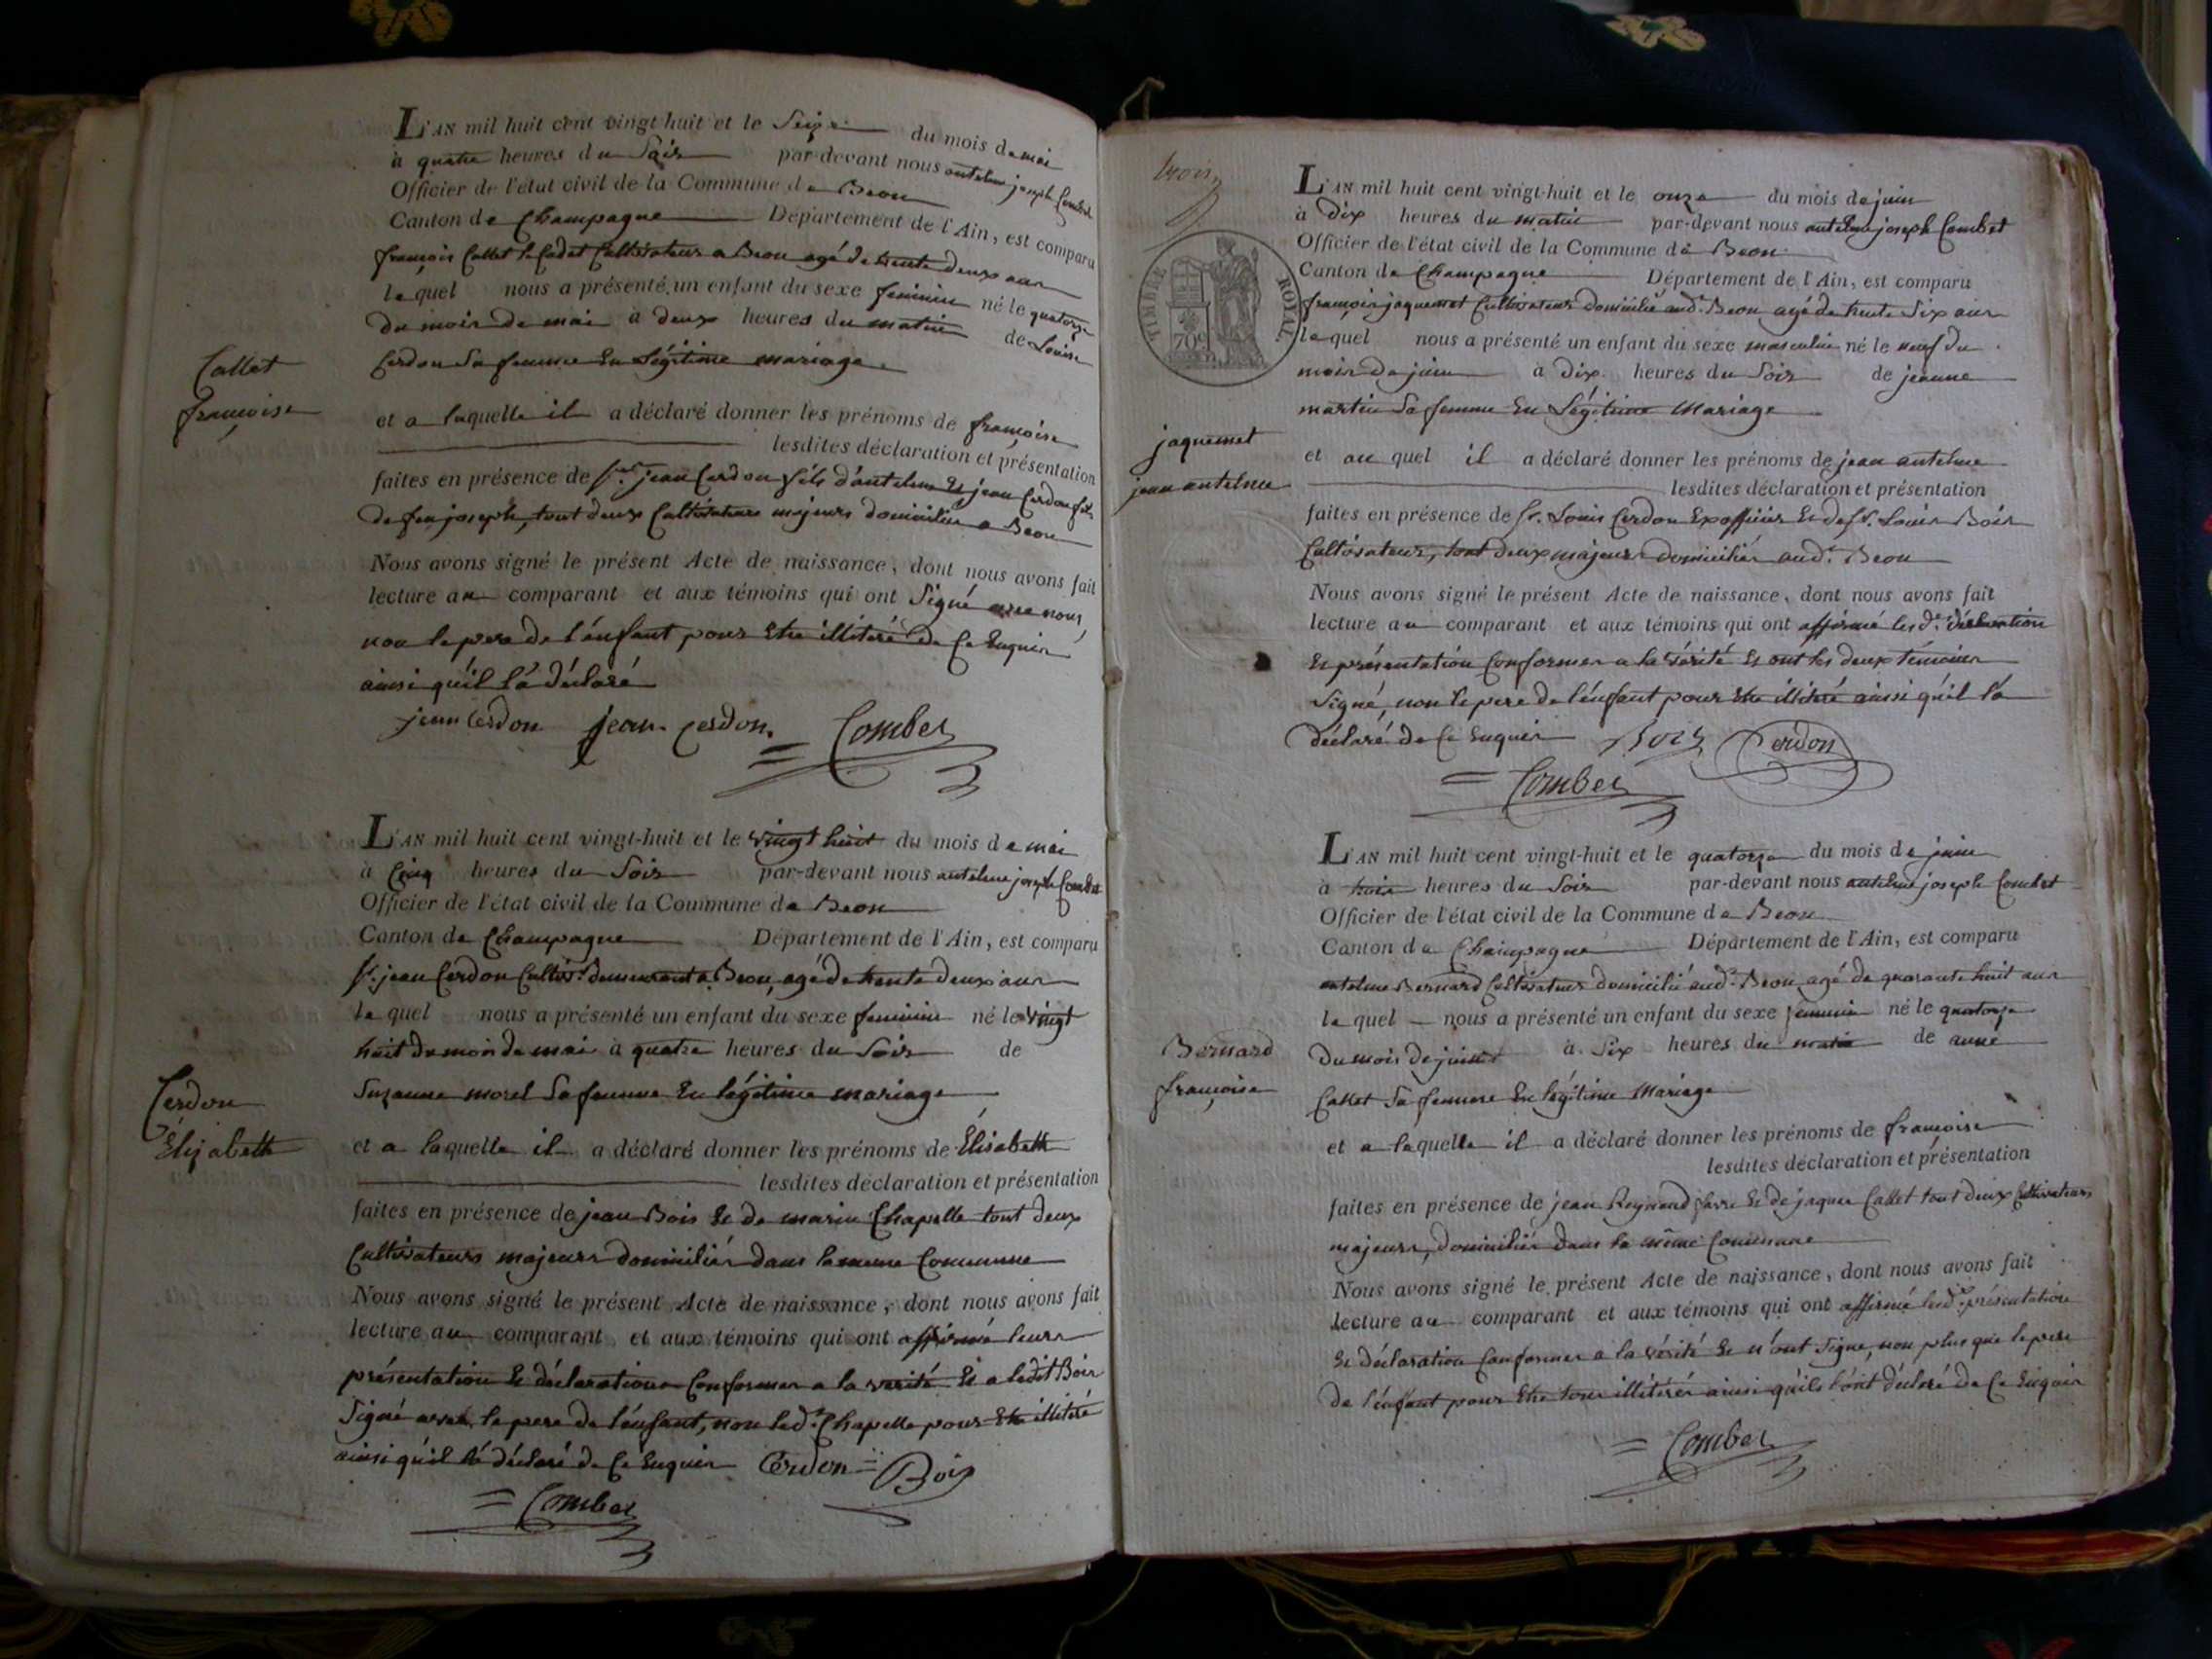 L'AN mil huit cent vingt-huit et le Seize du mois de mai
à quatre heures du Soir par-devant nous antelme joseph Combet
Officier de l'état civil de la Commune de Beon
Canton de Champagne Département de l'Ain, est comparu
françois Callet le Cadet Cultivateur a Beon agé de trente deux ans
lequel nous a présenté un enfant du sexe feminin né le quatorze
du mois de mai à deux heures du matin de Louise
Cerdon Sa femme En Légitime mariage
Callet
françoise
et a laquelle il a déclaré donner les prénoms de françoise
lesdites déclaration et présentation
faites en présence de Sr. jean Cerdon fils d'antelme Et jean Cerdon fils
de feu joseph, tout deux Cultivateurs majeurs domiciliés a Beon
Nous avons signé le présent Acte de naissance, dont nous avons fait
lecture au comparant et aux témoins qui ont Signé avec nous,
non le pere de l'énfant pour Etre illitéré de Ce Enquis
ainsi qu'il l'a déclaré
jean Cerdon jean Cerdon Combet
L'AN mil huit cent vingt-huit et le vingt huit du mois de mai
à Cinq heures du Soir par-devant nous antelme joseph Combet
Officier de l'état civil de la Commune de Beon
Canton de Champagne Département de l'Ain, est comparu
Sr. jean Cerdon Cultivr. demeurant a Beon, agé de trente deux ans
lequel nous a présenté un enfant du sexe feminin né le vingt
huit du mois de mai à quatre heures du Soir de
Suzanne morel Sa femme En légitime mariage
Cerdon
Elizabeth
et a laquelle il a déclaré donner les prénoms de Elisabeth
lesdites déclaration et présentation
faites en présence de jean Bois Et de marin Chapelle tout deux
Cultivateurs majeurs domiciliés dans la meme Commune
Nous avons signé le présent Acte de naissance, dont nous avons fait
lecture au comparant et aux témoins qui ont affirmé leurs
présentation Et déclaration Conformes a la verité Et a ledit Bois
Signé avec le pere de l'énfant, non led. Chapelle pour Etre illitéré
ainsi qu'il l'a déclaré de Ce Enquis Cerdon Bois
Combet
trois
TIMBRE ROYAL
70c
L'AN mil huit cent vingt-huit et le onze du mois de juin
à Dix heures du matin par-devant nous antelme joseph Combet
Officier de l'état civil de la Commune de Beon
Canton de Champagne Département de l'Ain, est comparu
françois jaquemet Cultivateur domicilié aud. Beon agé de trente Six ans
lequel nous a présenté un enfant du sexe masculin né le neuf du
mois de juin à Dix heures du Soir de jeanne
martin Sa femme En Légitime Mariage
jaquemet
jean antelme
et au quel il a déclaré donner les prénoms de jean antelme
lesdites déclaration et présentation
faites en présence de Sr. Louis Cerdon Exofficier Et de Sr. Louis Bois
Cultivateur, tout deux majeurs domiciliés aud. Beon
Nous avons signé le présent Acte de naissance, dont nous avons fait
lecture au comparant et aux témoins qui ont affirmé les d. déclaration
Et présentation Conformes a la vérité Et ont les deux témoins
Signé, non le pere de l'énfant pour Etre illitéré ainsi qu'il l'a
déclaré de Ce Enquis Bois Cerdon
Combet
L'AN mil huit cent vingt-huit et le quatorze du mois de juin
à huit heures du Soir par-devant nous antelme joseph Combet
Officier de l'état civil de la Commune de Beon
Canton de Champagne Département de l'Ain, est comparu
antelme Bernard Cultivateur domicilié aud. Beon, agé de quarante huit ans
lequel nous a présenté un enfant du sexe feminin né le quatorze
du mois de juin à Six heures du matin de anne
Callet Sa femme En légitime Mariage
Bernard
françoise
et a laquelle il a déclaré donner les prénoms de françoise
lesdites déclaration et présentation
faites en présence de jean Reynaud Et de jaques Callet tout deux Cultivateurs
majeurs, domiciliés dans la même Commune
Nous avons signé le présent Acte de naissance, dont nous avons fait
lecture au comparant et aux témoins qui ont affirmé présentation
Et déclaration Conformes a la vérité Et n'ont Signé, non plus que le pere
de l'énfant pour Etre tous illitérés ainsi qu'ils l'ont déclaré de Ce Enquis
Combet